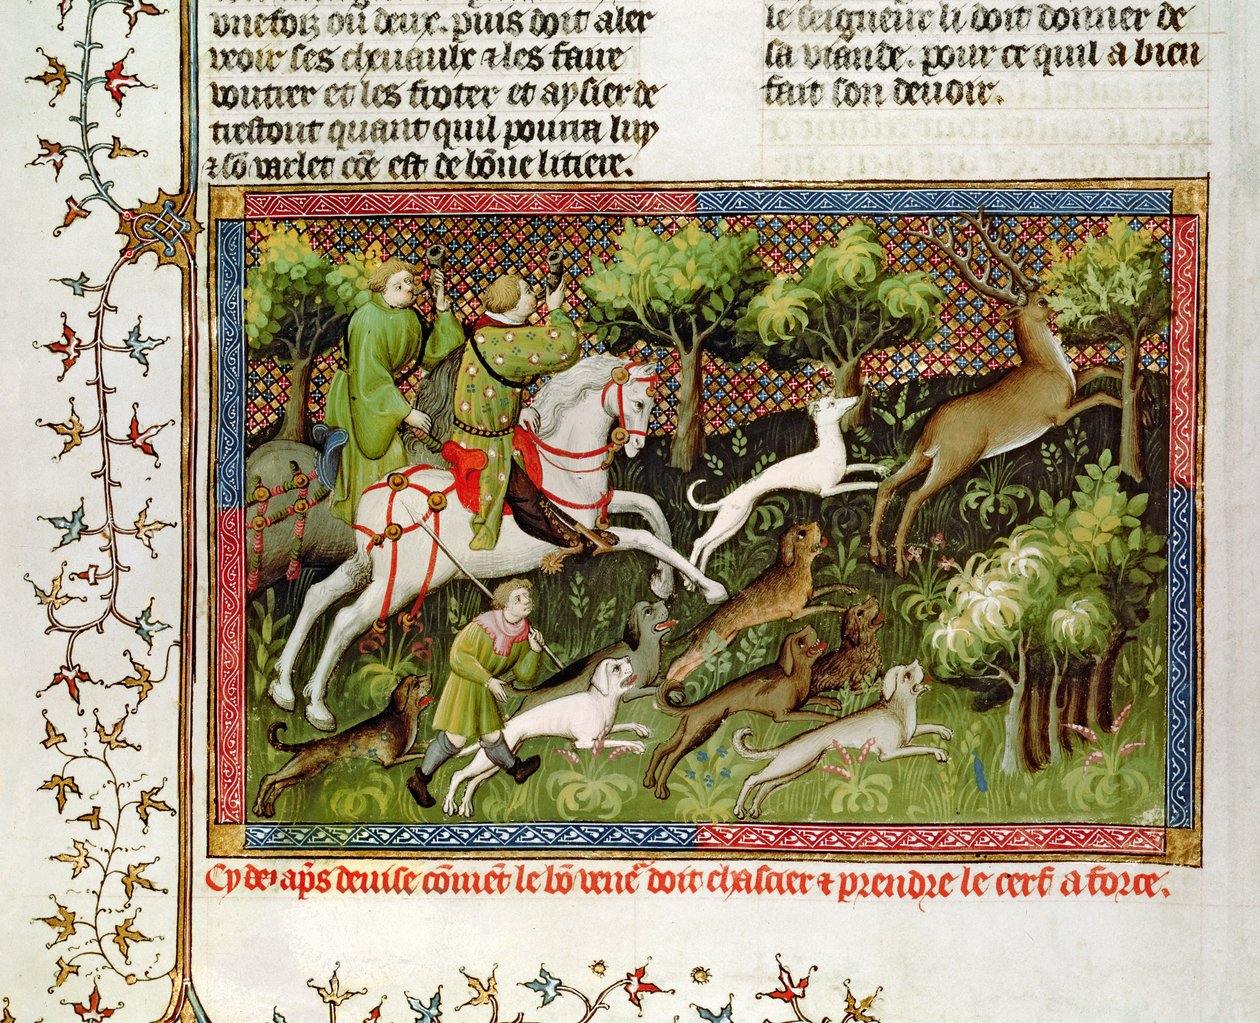 vne foiz ou deux. puis doit aler
veoir ses cheuaulx ⁊ les faire
torchier et les froter et aysier de
trestout quant quil pourra luy
⁊ sō varlet cōe est de bōne litiere.
le seigneur li doit donner de
sa viande. pour ce quil a bien
fait son deuoir.
Cy dez ap̄s deuise cōmēt le bō venē doit chascier ⁊ prendre le cerf a force.